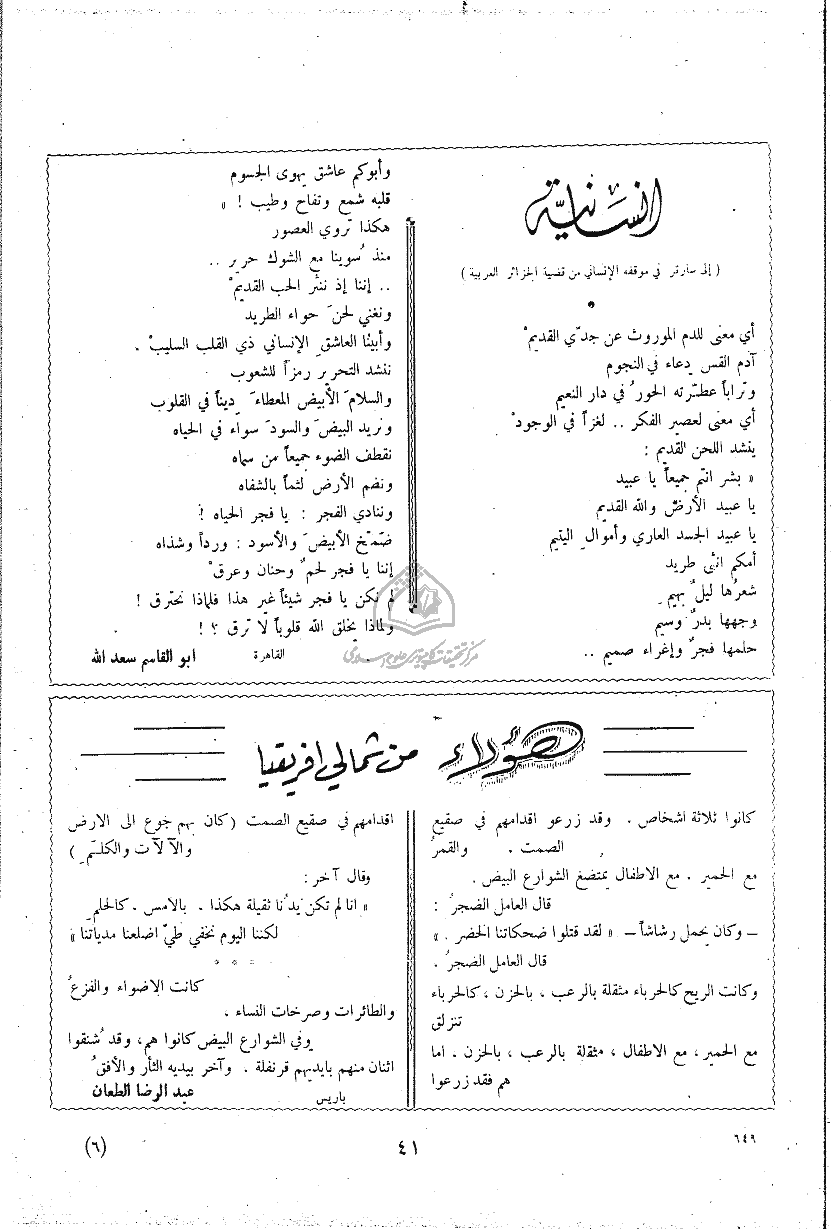 انسانية
( إلى سارتر في موقفه الإنساني من قضية الجزائر العربية )
أي معنى للدم الموروث عن جدّي القديمْ
آدم القس دعاء في النجوم
وتراباً عطّرته الحورُ في دار النعيم
أي معنى لعصير الفكر .. لغزاً في الوجودْ
ينشد اللحن القديم :
« بشر انتم جميعاً يا عبيد
يا عبيد الأرض والله القديم
يا عبيد الجسد العاري وأموال اليتيم
أمكم انثى طريد
شعرُها ليلٌ بهيم
وجهها بدرٌ وسيم
حلمها فجرٌ وإغراء صميم ..
وأبوكم عاشق يهوى الجسوم
قلبه شمع وتفاح وطيب ! »
هكذا تروي العصور
منذ سُوينا مع الشوك حرير ..
.. إننا إذ ننثر الحب القديمْ
ونغني لحنَ حواء الطريد
وأبينا العاشقِ الإنساني ذي القلب السليبْ .
ننشد التحرير رمزاً للشعوب
والسلامَ الأبيض المعطاءَ ديناً في القلوب
ونريد البيضَ والسودَ سواء في الحياه
نقطف الضوء جميعاً من سماه
ونضم الأرض لثماً بالشفاه
وننادي الفجر : يا فجر الحياه !
ضمّخ الأبيضَ والأسود : ورداً وشذاه
إننا يا فجر لحمٌ وحنان وعرقْ
لم نكن يا فجر شيئاً غير هذا فلماذا نحترق !
ولماذا يخلق الله قلوباً لا ترق ؟ !
القاهرة ابو القاسم سعد الله
مركز تحقيقات كامپيوترى علوم اسلامى
هؤلاء من شمالي افريقيا
كانوا ثلاثة اشخاص . وقد زرعو اقدامهم في صقيع
الصمت . والقمرُ
مع الحمير . مع الاطفال يمتضغ الشوارع البيض .
قال العامل الضجرُ :
— وكان يحمل رشاشاً — « لقد قتلوا ضحكاتنا الخضر . »
قال العامل الضجرُ .
وكانت الريح كالحرباء مثقلة بالرعب ، بالحزن ، كالحرباء
تنزلق
مع الحمير ، مع الاطفال ، مثقلة بالرعب ، بالحزن . اما
هم فقد زرعوا
اقدامهم في صقيع الصمت (كان بهم جوع الى الارض
والآلات والكلمِ )
وقال آخر :
« انا لم تكن يدُنا ثقيلة هكذا . بالامس . كالحلمِ
لكننا اليوم نخفي طيّ اضلعنا مدياتنا »
* * *
كانت الاضواء والفزعُ
والطائرات وصرخات النساء .
وفي الشوارع البيض كانوا هم، وقد شُنقوا
اثنان منهم بايديهم قرنفلة . وآخر بيديه الثأر والأفقُ
باريس عبد الرضا الطعان
٦٤٩
٤١
(٦)